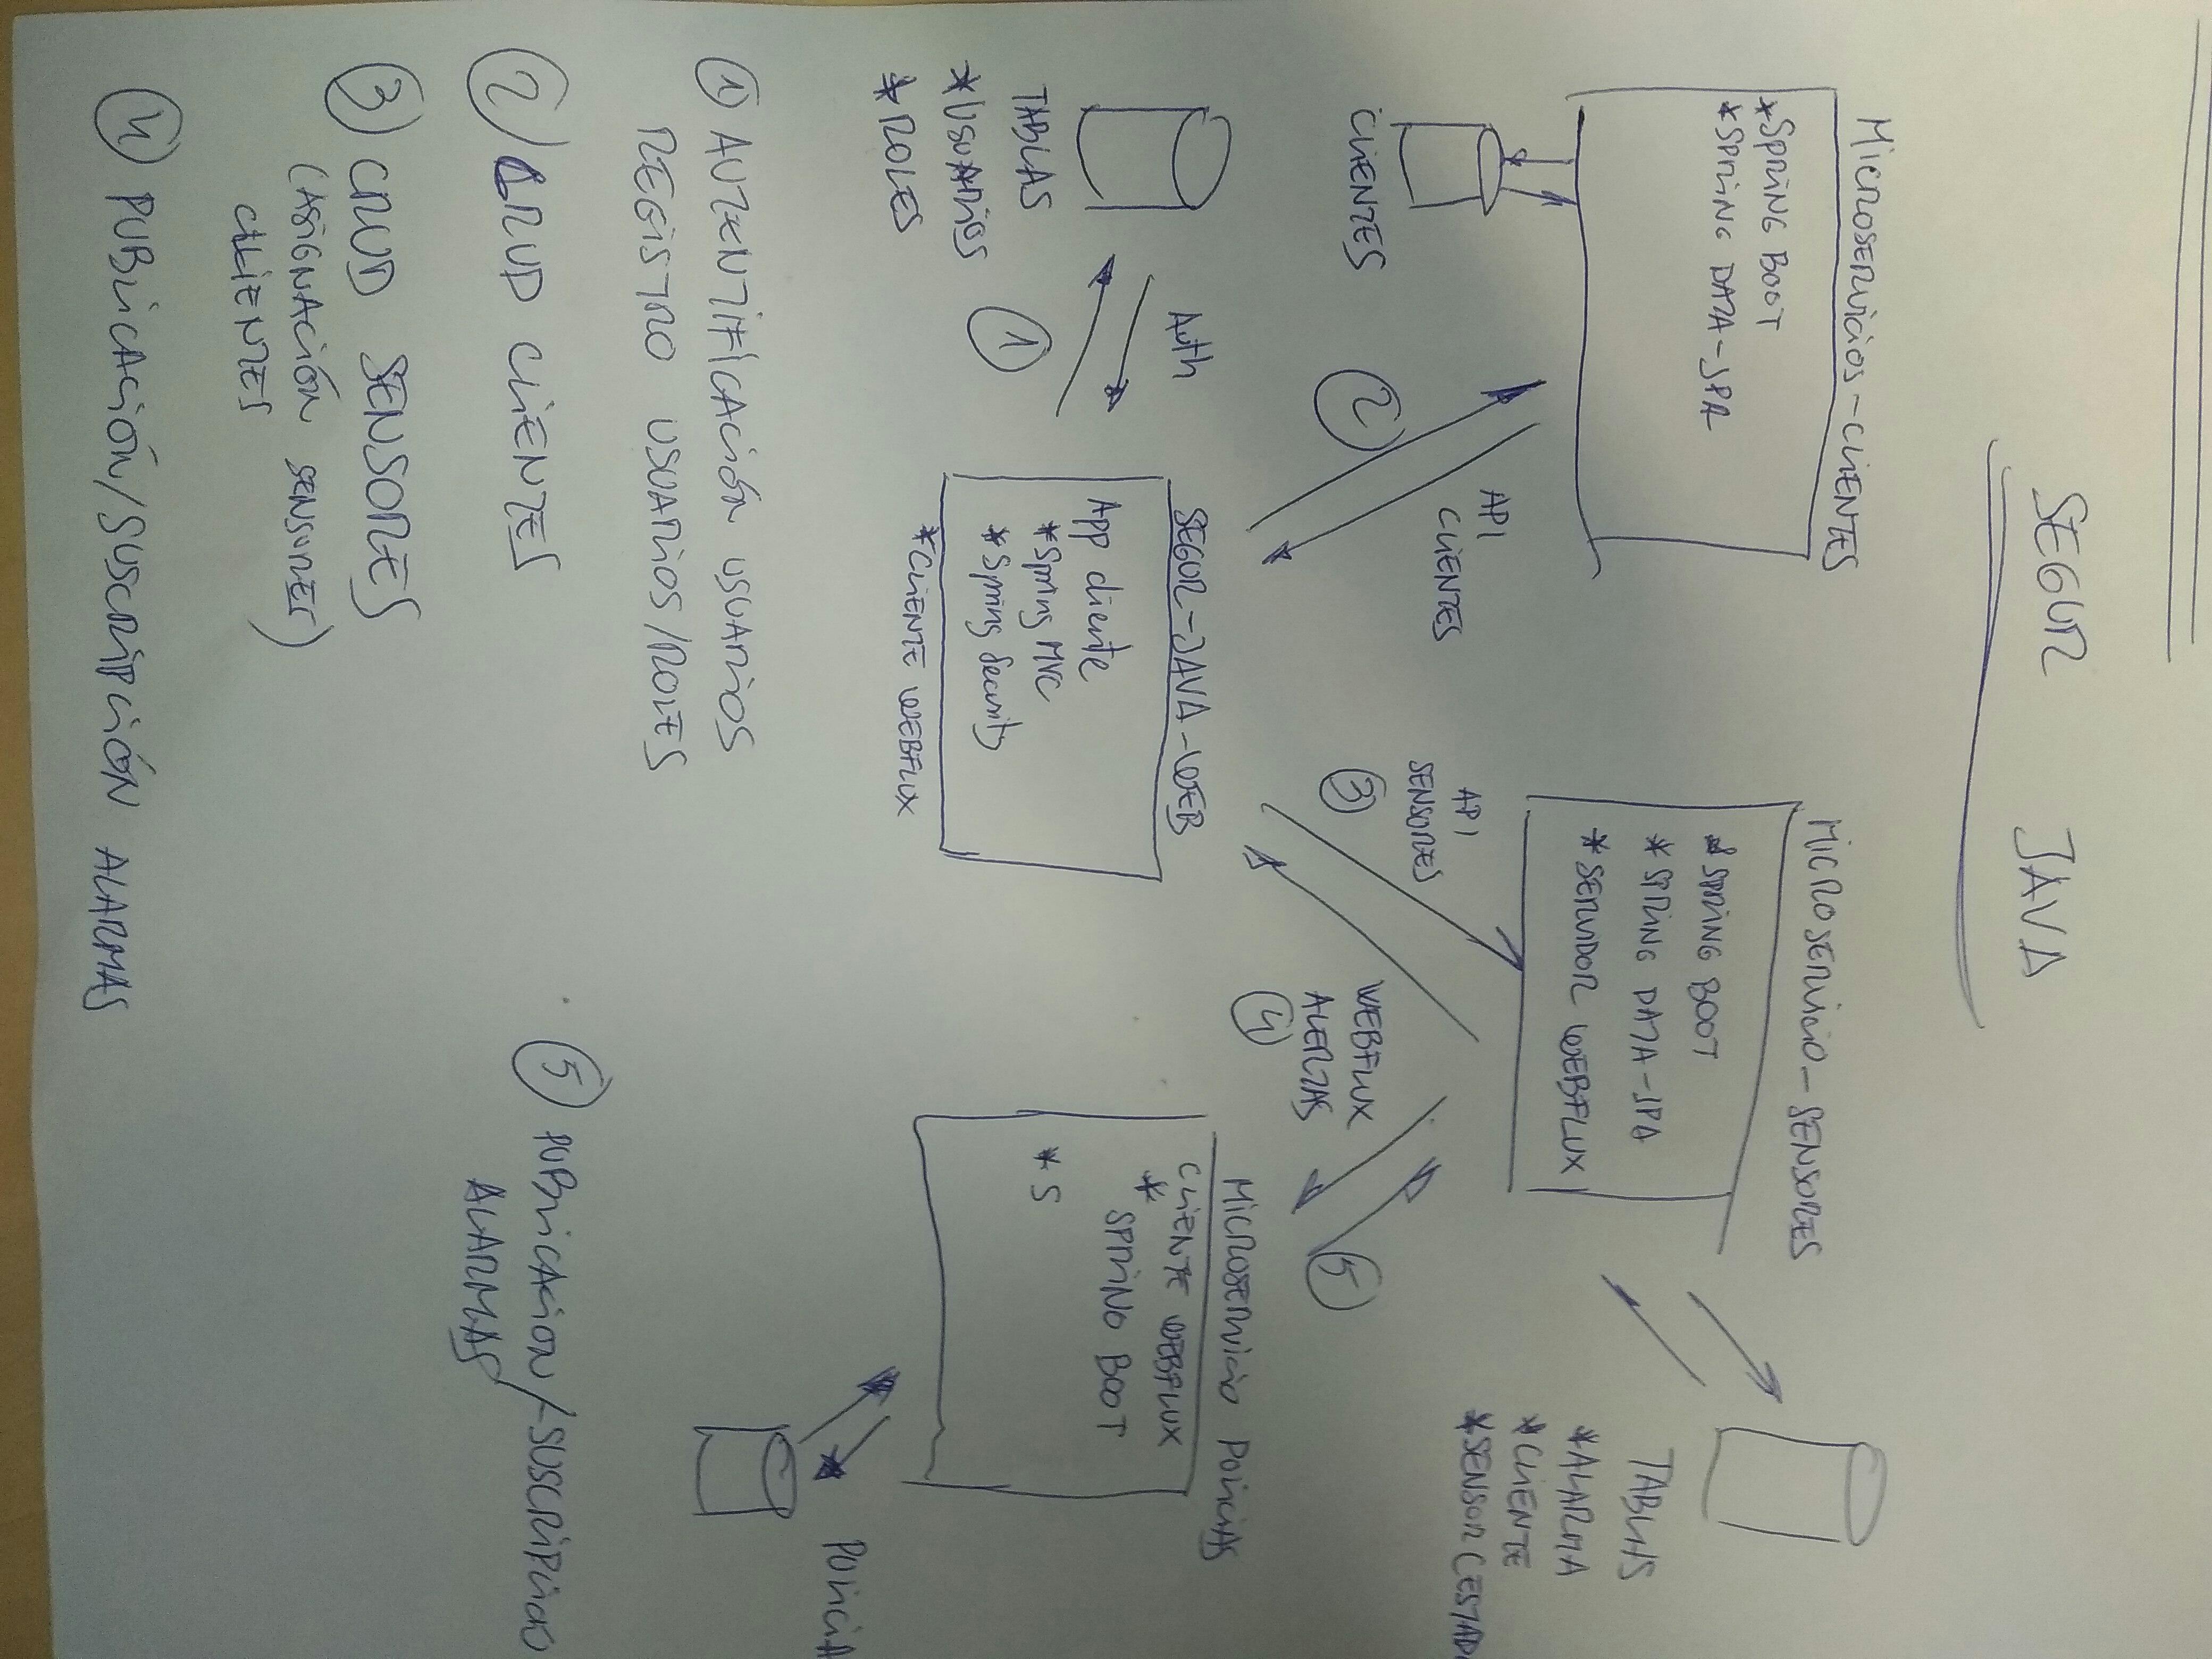 SEGUR JAVA
MICROSERVICIOS-CLIENTES
*SPRING BOOT
*SPRING DATA-JPA
CLIENTES
API
CLIENTES
2
MICROSERVICIO-SENSORES
*SPRING BOOT
*SPRING DATA-JPA
*SERVIDOR WEBFLUX
TABLAS
*ALARMA
*CLIENTE
*SENSOR (ESTAD
API
SENSORES
3
WEBFLUX
ALERTAS
4
5
TABLAS
*USUARIOS
*ROLES
Auth
1
SEGUR-JAVA-WEB
App cliente
*Spring MVC
*Spring Security
*CLIENTE WEBFLUX
MICROSERVICIO POLICIAS
CLIENTE WEBFLUX
*
SPRING BOOT
*S
POLICIA
1 AUTENTIFICACIÓN USUARIOS
REGISTRO USUARIOS/ROLES
2 CRUD CLIENTES
3 CRUD SENSORES
(ASIGNACIÓN SENSORES)
CLIENTES
4 PUBLICACIÓN/SUSCRIPCIÓN ALARMAS
5 PUBLICACION/SUSCRIPCIO
ALARMAS